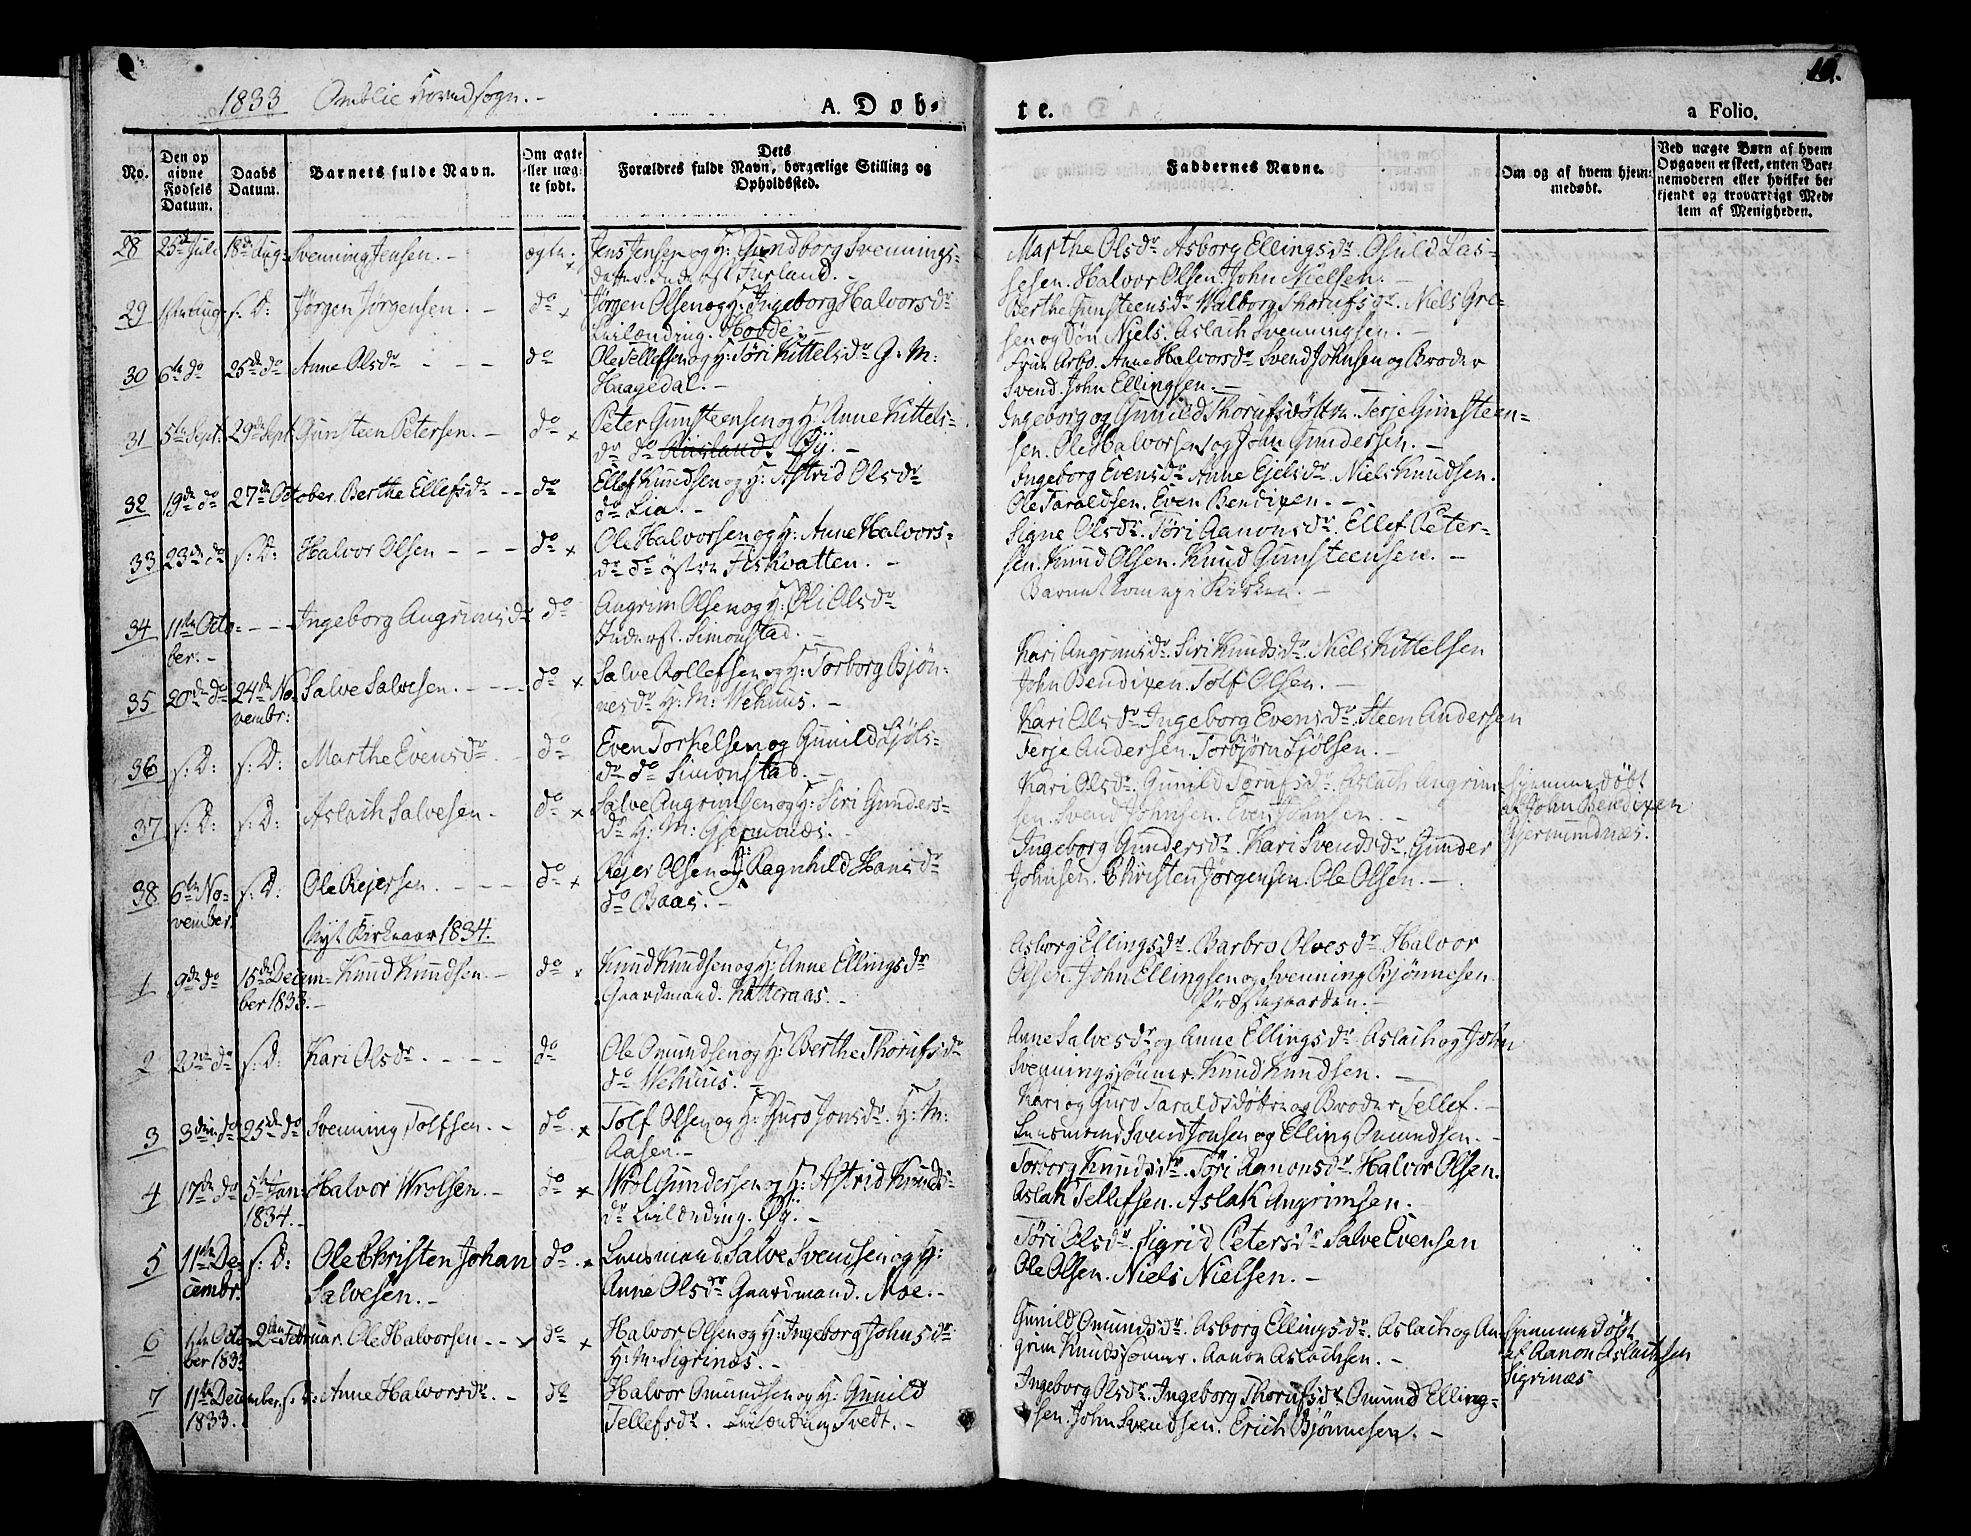 1833 Omblie Hovedsogn. -
A. Dob-
te.
a Folio.
No.
Den op
givne
Fodsels
Datum.
Daabs
Datum.
Barnets fulde Navn.
Om ægte
eller uæg-
te født.
Dets
Forældres fulde Navn, borgerlige Stilling og
Opholdssted.
Faddernes Navne.
Om og af hvem hjem-
medøbt.
Ved uægte Børn af hvem
Opgaven er skeet, enten Bar-
nemoderen eller hvilket be-
kjendt og troværdigt Med-
lem af Menigheden.
28 25de Juli 18de Aug: Svenning Jensen. - ægte. Jens Jensen og H: Gundborg Svennings-
datter. Inderst Furland. -
Marthe Olsdr. Asborg Ellingsdr. Osuld Las-
sesen. Halvor Olsen. John Nielsen. -
29 Aug s. D: Jørgen Jørgensen. - do x Jørgen Olsen og H: Ingeborg Halvorsdr
Leilænding. Hovde. -
Berthe Gunsteensdr. Walborg Thorufsdr. Niels Gre-
sen og Søn Niels. Aslach Svenningsen. -
30 6te do 25de do Anne Olsdr - - - do Ole Tellefsen og H: Tøri Kittelsdr G. M:
Haagedal. -
Anne Halvorsdr Svend Johnsen og Broder
Svend. John Ellingsen. -
31 5te Sept: 29de Sept. Gunsteen Petersen. - do x Peter Gunsteensen og H: Anne Kittels-
dr do Øy. -
Ingeborg og Gunild Thorufsdøttre. Terje Gunsteen-
sen. Ole Halvorsen og John Gundersen. -
32 19de do 27de October. Berthe Ellefsdr - - do Ellef Knudsen og H: Astrid Olsdr
do Lia. -
Ingeborg Evensdr. Anne Ejelsdr. Niels Knudsen.
Ole Taraldsen. Even Bendixen. -
33 23de do s. D: Halvor Olsen - - - do x Ole Halvorsen og H: Anne Halvors-
dr do østre Fiskvatten. -
Signe Olsdr. Tøri Aanonsdr. Ellef Peter-
sen. Knud Olsen. Knud Gunsteensen. -
34 11te Octo-
ber. - - - Ingeborg Angrimsdr do Angrim Olsen og H: Oli Olsdr
Inderst. Simonstad. -
Barnet kom ej i Kirken. -
35 20de do 24de No-
vembr: Salve Salvesen. - - - do x Salve Rollefsen og H: Torborg Bjøn-
nesdr H: M: Wehuus. -
Kari Angrimsdr. Siri Knudsdr. Niels Kittelsen
John Bendixen. Tolf Olsen. -
36 s: D: s: D: Marthe Evensdr. do Even Torkelsen og Gunild Ljøls-
dr do Simonstad. -
Kari Olsdr Ingeborg Evensdr. Steen Andersen
Terje Andersen. Torbjørn Ljølsen. -
37 s: D: s: D: Aslach Salvesen - do x Salve Angrimsen og H: Siri Gunders-
dr H: M: Gjermonæs. -
Kari Olsdr. Gunild Torufsdr. Aslach Angrim-
sen. Svend Johnsen. Even Johnsen. -
Hjemmedøbt
af John Bendixen
Gjermundnæs.
38 6te No-
vember. s. D: Ole Rejersen. - - - do x Rejer Olsen og H: Ragnhild Hansdr
do Baas. -
Ingeborg Gundersdr. Kari Svendsdr. Gunder
Johnsen. Christen Jørgensen. Ole Olsen. -
Nyt Kirkeaar 1834.
1 9de do 15de Decem-
ber 1833. - Knud Knudsen. - do x Knud Knudsen og H: Anne Ellingsdr
Gaardmand. Katteraas. -
Asborg Ellingsdr. Barbro Olvesdr. Halvor
Olsen. John Ellingsen og Svenning Bjønnesen.
Præstegaarden. -
2 do s. D. Kari Olsdr. - - - - do Ole Omundsen og H: Berthe Thorufsdr
do Wehuus. -
Anne Salvesdr og Anne Ellingsdr. Aslach og John
Svenningssønner. Knud Knudsen. -
3 3die do 25de do Svenning Tolfsen. - do. x Tolf Olsen og H: Guro Jonsdr. H: M:
Aasen. -
Kari og Guro Taraldsdøttre og Broder Tellef. -
Lensmand Svend Jonsen og Elling Omundsen. -
4 17de do 5te Jan:
1834. - Halvor Wrolsen. - do x Wrol Gundersen og H: Astrid Knuds-
dr Leilænding. Øy. -
Torborg Knudsdr. Tøri Aanonsdr. Halvor Olsen.
Aslak Tellefsen. Aslak Angrimsen.
5 11te De-
cembr. s. D: Ole Christen Johan
Salvesen. - do. x Lensmand Salve Svendsen og H:
Anne Olsdr Gaardmand. Moe. -
Tøri Olsdr. Sigrid Petersdr Salve Evensen
Ole Olsen. Niels Nielsen. -
6 Octo-
ber 1833 2den Februar. Ole Halvorsen - - do x Halvor Olsen og H: Ingeborg Johnsdr
H: M: Sigrinæs. -
Gunild Omundsdr. Asborg Ellingsdr. Aslach og An-
grim Knudssønner. Aanon Aslachsen. -
Hjemmedøbt
af Aanon Aslachsen
Sigrinæs
7 11te December. s. D: Anne Halvorsdr. - do
1833. Halvor Omundsen og H: Gunild
Tellefsdr. Leilænding Svedt. -
Ingeborg Olsdr. Ingeborg Thorufsdr Omund Elling-
sen. John Svendsen. Erich Bjønnesen. -